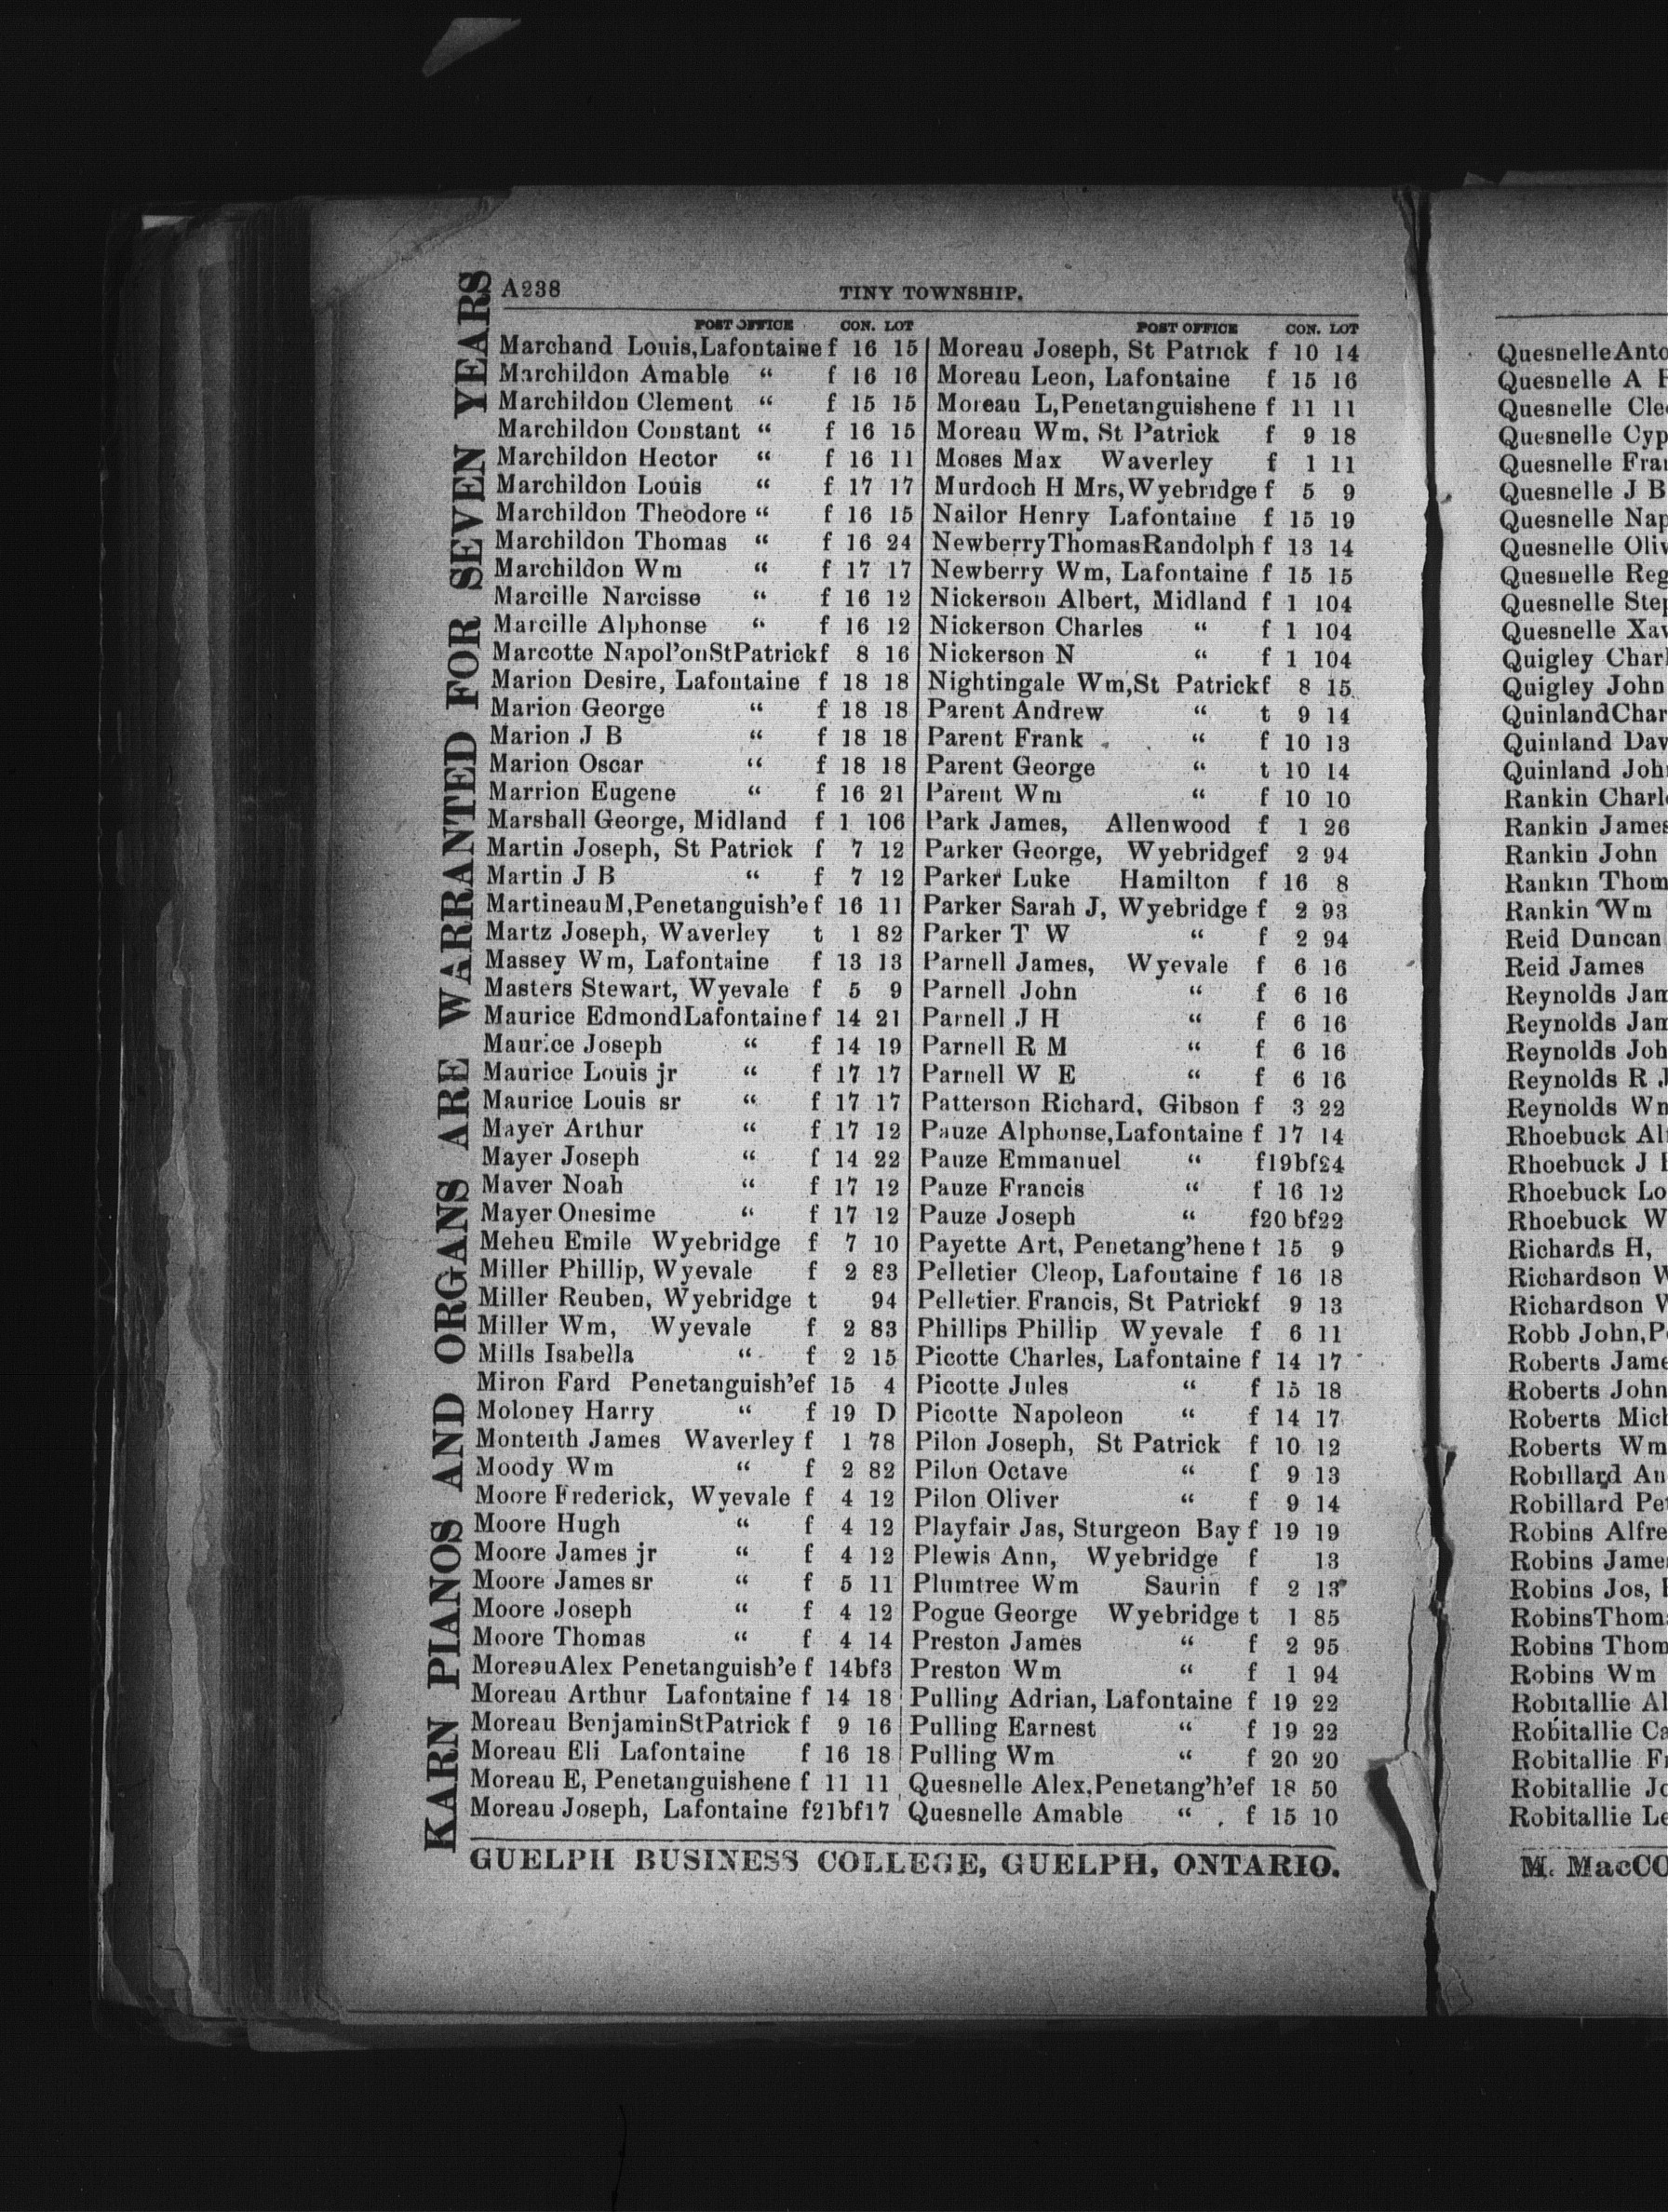 A238 TINY TOWNSHIP.
KARN PIANOS AND ORGANS ARE WARRANTED FOR SEVEN YEARS
POST OFFICE CON. LOT
Marchand Louis,Lafontaine f 16 15
Marchildon Amable “ f 16 16
Marchildon Clement “ f 15 15
Marchildon Constant “ f 16 15
Marchildon Hector “ f 16 11
Marchildon Louis “ f 17 17
Marchildon Theodore “ f 16 15
Marchildon Thomas “ f 16 24
Marchildon Wm “ f 17 17
Marcille Narcisse “ f 16 12
Marcille Alphonse “ f 16 12
Marcotte Napol'onStPatrickf 8 16
Marion Desire, Lafontaine f 18 18
Marion George “ f 18 18
Marion J B “ f 18 18
Marion Oscar “ f 18 18
Marrion Eugene “ f 16 21
Marshall George, Midland f 1 106
Martin Joseph, St Patrick f 7 12
Martin J B “ f 7 12
MartineauM,Penetanguish'e f 16 11
Martz Joseph, Waverley t 1 82
Massey Wm, Lafontaine f 13 13
Masters Stewart, Wyevale f 5 9
Maurice EdmondLafontaine f 14 21
Maurice Joseph “ f 14 19
Maurice Louis jr “ f 17 17
Maurice Louis sr “ f 17 17
Mayer Arthur “ f 17 12
Mayer Joseph “ f 14 22
Maver Noah “ f 17 12
Mayer Onesime “ f 17 12
Meheu Emile Wyebridge f 7 10
Miller Phillip, Wyevale f 2 83
Miller Reuben, Wyebridge t 94
Miller Wm, Wyevale f 2 83
Mills Isabella “ f 2 15
Miron Fard Penetanguish'ef 15 4
Moloney Harry “ f 19 D
Monteith James Waverley f 1 78
Moody Wm “ f 2 82
Moore Frederick, Wyevale f 4 12
Moore Hugh “ f 4 12
Moore James jr “ f 4 12
Moore James sr “ f 5 11
Moore Joseph “ f 4 12
Moore Thomas “ f 4 14
MoreauAlex Penetanguish'e f 14bf3
Moreau Arthur Lafontaine f 14 18
Moreau BenjaminStPatrick f 9 16
Moreau Eli Lafontaine f 16 18
Moreau E, Penetanguishene f 11 11
Moreau Joseph, Lafontaine f21bf17
POST OFFICE CON. LOT
Moreau Joseph, St Patrick f 10 14
Moreau Leon, Lafontaine f 15 16
Moreau L,Penetanguishene f 11 11
Moreau Wm, St Patrick f 9 18
Moses Max Waverley f 1 11
Murdoch H Mrs,Wyebridge f 5 9
Nailor Henry Lafontaine f 15 19
NewberryThomasRandolph f 13 14
Newberry Wm, Lafontaine f 15 15
Nickerson Albert, Midland f 1 104
Nickerson Charles “ f 1 104
Nickerson N “ f 1 104
Nightingale Wm,St Patrickf 8 15
Parent Andrew “ t 9 14
Parent Frank “ f 10 13
Parent George “ t 10 14
Parent Wm “ f 10 10
Park James, Allenwood f 1 26
Parker George, Wyebridgef 2 94
Parker Luke Hamilton f 16 8
Parker Sarah J, Wyebridge f 2 93
Parker T W “ f 2 94
Parnell James, Wyevale f 6 16
Parnell John “ f 6 16
Parnell J H “ f 6 16
Parnell R M “ f 6 16
Parnell W E “ f 6 16
Patterson Richard, Gibson f 3 22
Pauze Alphonse,Lafontaine f 17 14
Pauze Emmanuel “ f19bf24
Pauze Francis “ f 16 12
Pauze Joseph “ f20 bf22
Payette Art, Penetang'hene t 15 9
Pelletier Cleop, Lafontaine f 16 18
Pelletier Francis, St Patrickf 9 13
Phillips Phillip Wyevale f 6 11
Picotte Charles, Lafontaine f 14 17
Picotte Jules “ f 15 18
Picotte Napoleon “ f 14 17
Pilon Joseph, St Patrick f 10 12
Pilon Octave “ f 9 13
Pilon Oliver “ f 9 14
Playfair Jas, Sturgeon Bay f 19 19
Plewis Ann, Wyebridge f 13
Plumtree Wm Saurin f 2 13
Pogue George Wyebridge t 1 85
Preston James “ f 2 95
Preston Wm “ f 1 94
Pulling Adrian, Lafontaine f 19 22
Pulling Earnest “ f 19 22
Pulling Wm “ f 20 20
Quesnelle Alex,Penetang'h'ef 18 50
Quesnelle Amable “ f 15 10
GUELPH BUSINESS COLLEGE, GUELPH, ONTARIO.
QuesnelleAnto
Quesnelle A
Quesnelle Cle
Quesnelle Cyp
Quesnelle Fra
Quesnelle J B
Quesnelle Nap
Quesnelle Oliv
Quesnelle Reg
Quesnelle Step
Quesnelle Xav
Quigley Charl
Quigley John
QuinlandChar
Quinland Dav
Quinland Joh
Rankin Charl
Rankin James
Rankin John
Rankin Thom
Rankin Wm
Reid Duncan
Reid James
Reynolds Jam
Reynolds Jam
Reynolds Joh
Reynolds R J
Reynolds Wm
Rhoebuck Al
Rhoebuck J
Rhoebuck Lo
Rhoebuck W
Richards H,
Richardson W
Richardson W
Robb John,P
Roberts Jame
Roberts John
Roberts Mich
Roberts Wm
Robillard An
Robillard Pet
Robins Alfre
Robins James
Robins Jos,
RobinsThoma
Robins Thom
Robins Wm
Robitallie Al
Robitallie Ca
Robitallie Fr
Robitallie Jo
Robitallie Le
M. MacCO